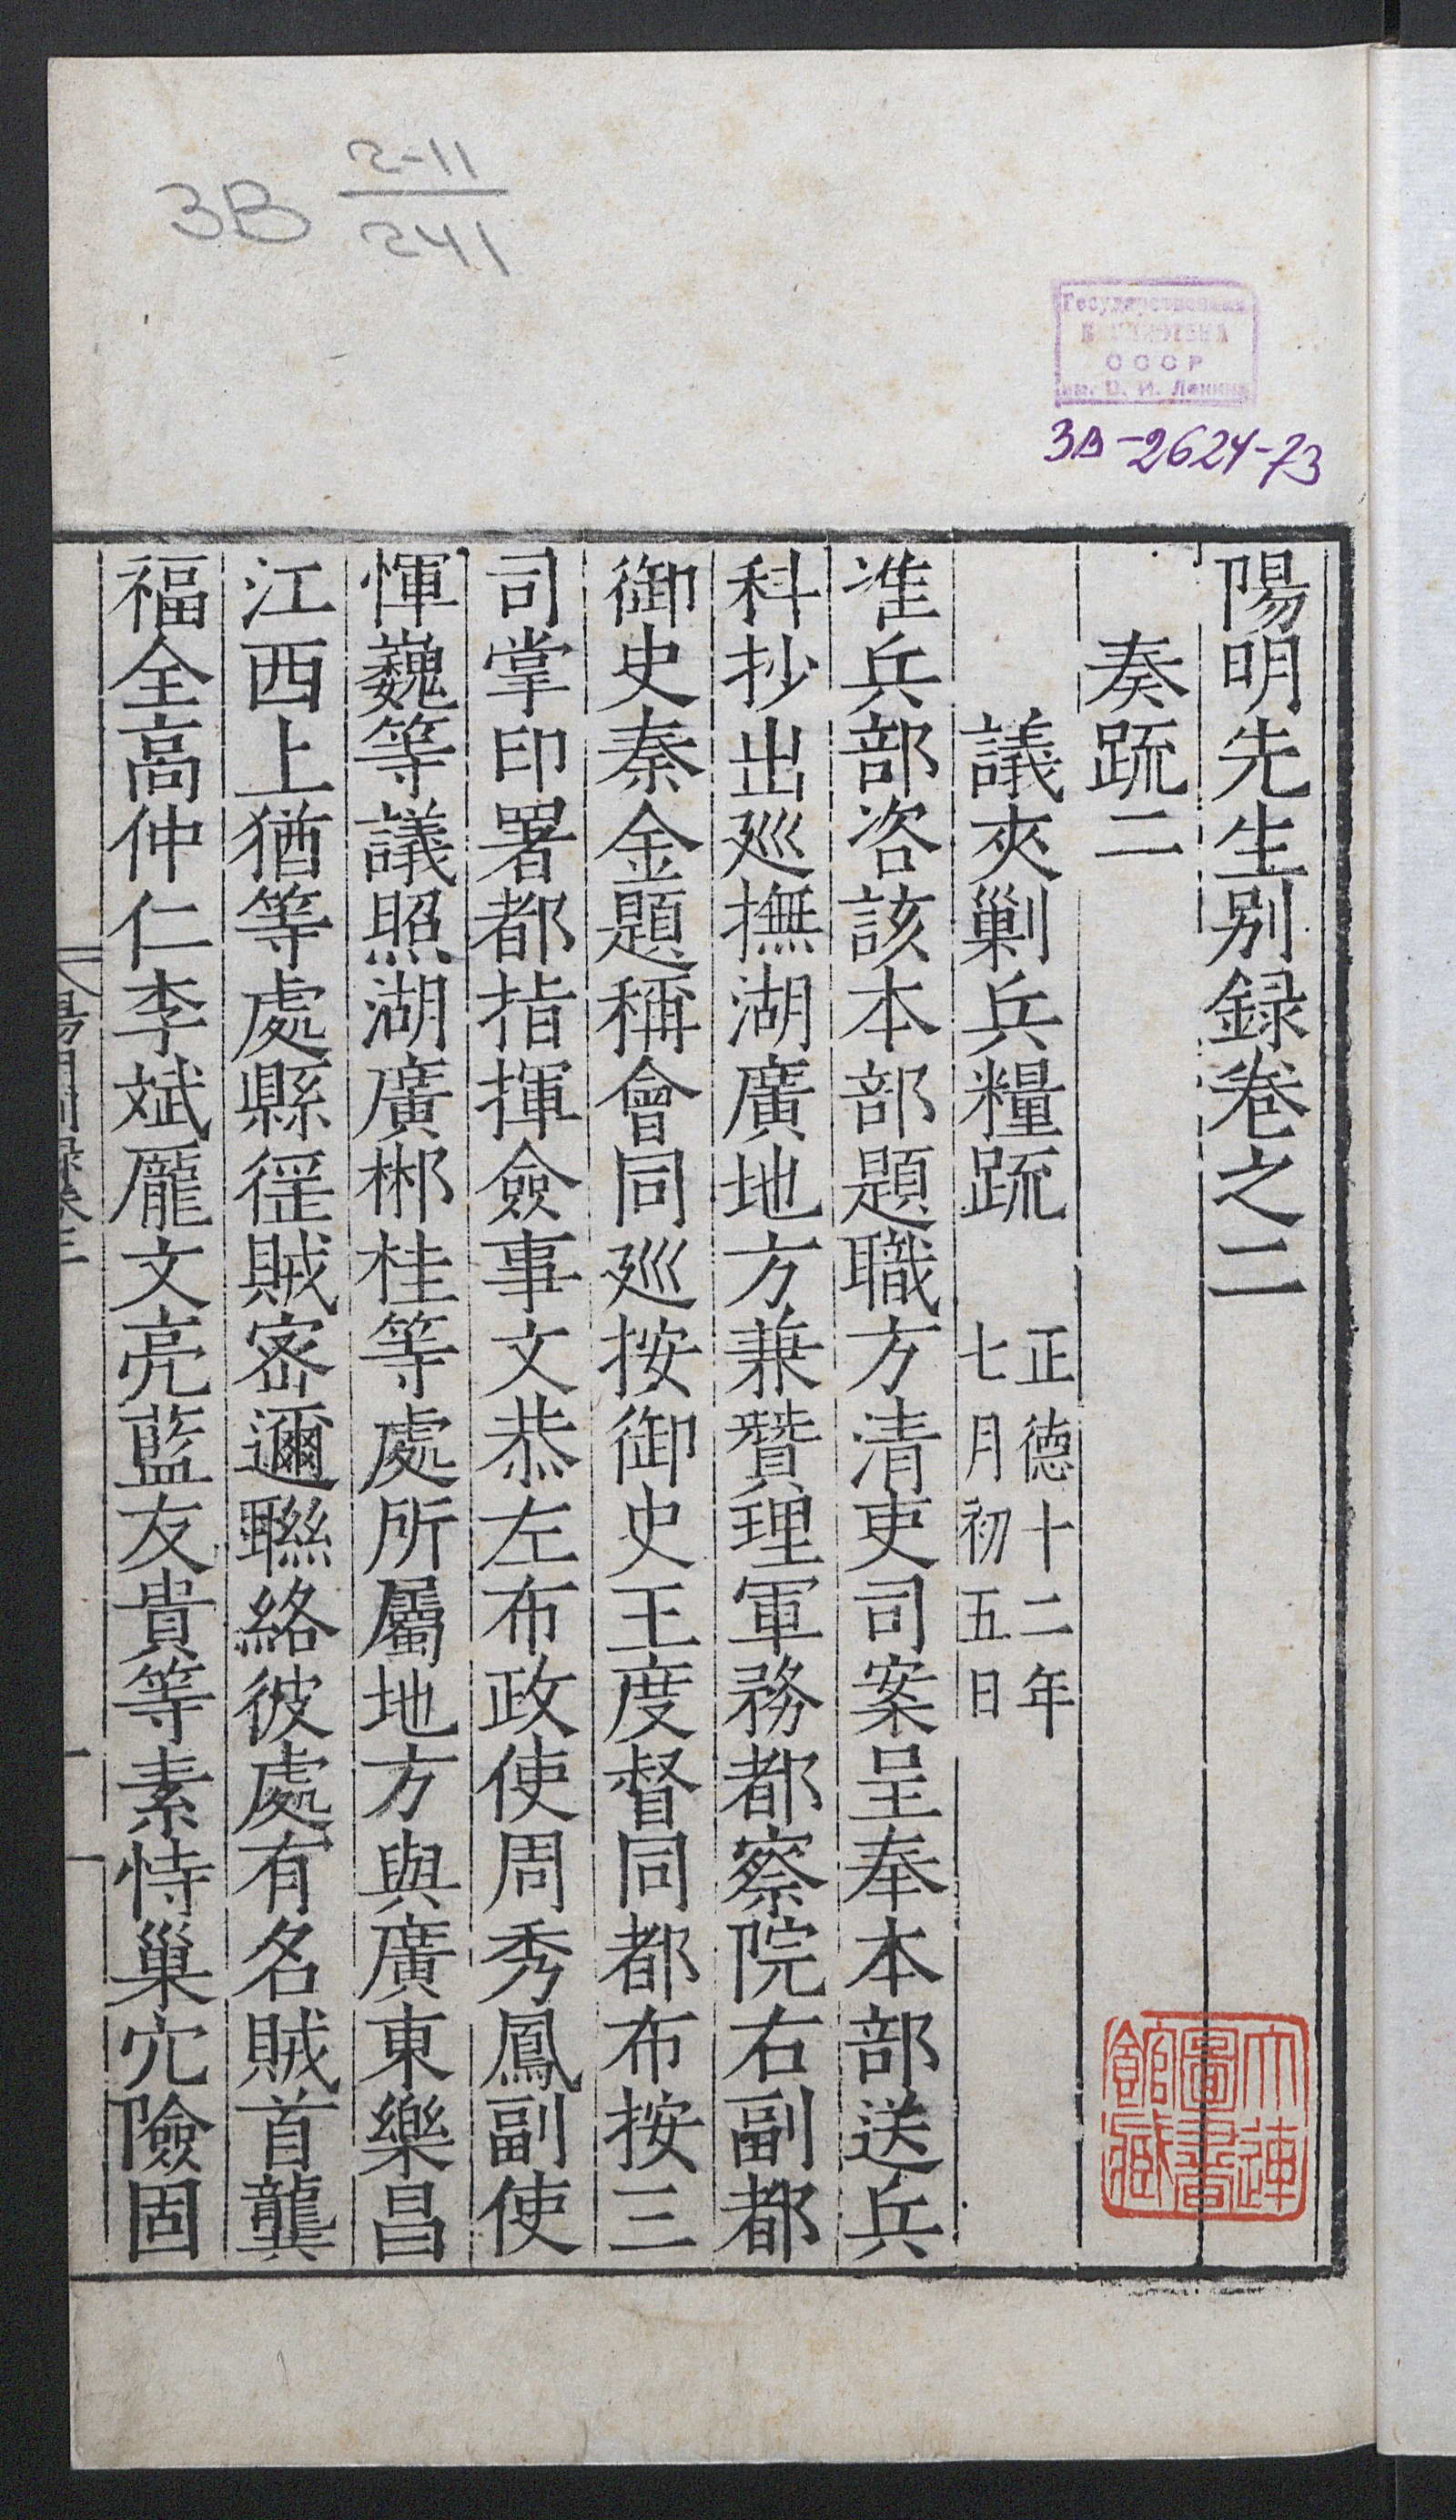 3B 2-11
241
Государственная
БИБЛИОТЕКА
СССР
им. В. И. Ленина
3В-2624-73
陽明先生别録卷之二
奏疏二
議夾剿兵糧疏
正德十二年
七月初五日
准兵部咨該本部題職方清吏司案呈奉本部送兵
科抄出廵撫湖廣地方兼贊理軍務都察院右副都
御史秦金題稱會同廵按御史王度督同都布按三
司掌印署都指揮僉事文恭左布政使周秀鳳副使
惲巍等議照湖廣郴桂等處所屬地方與廣東樂昌
江西上猶等處縣徭賊宻邇聯絡彼處有名賊首龔
福全高仲仁李斌龎文亮藍友貴等素恃巢穴險固
大連
圖書
館藏